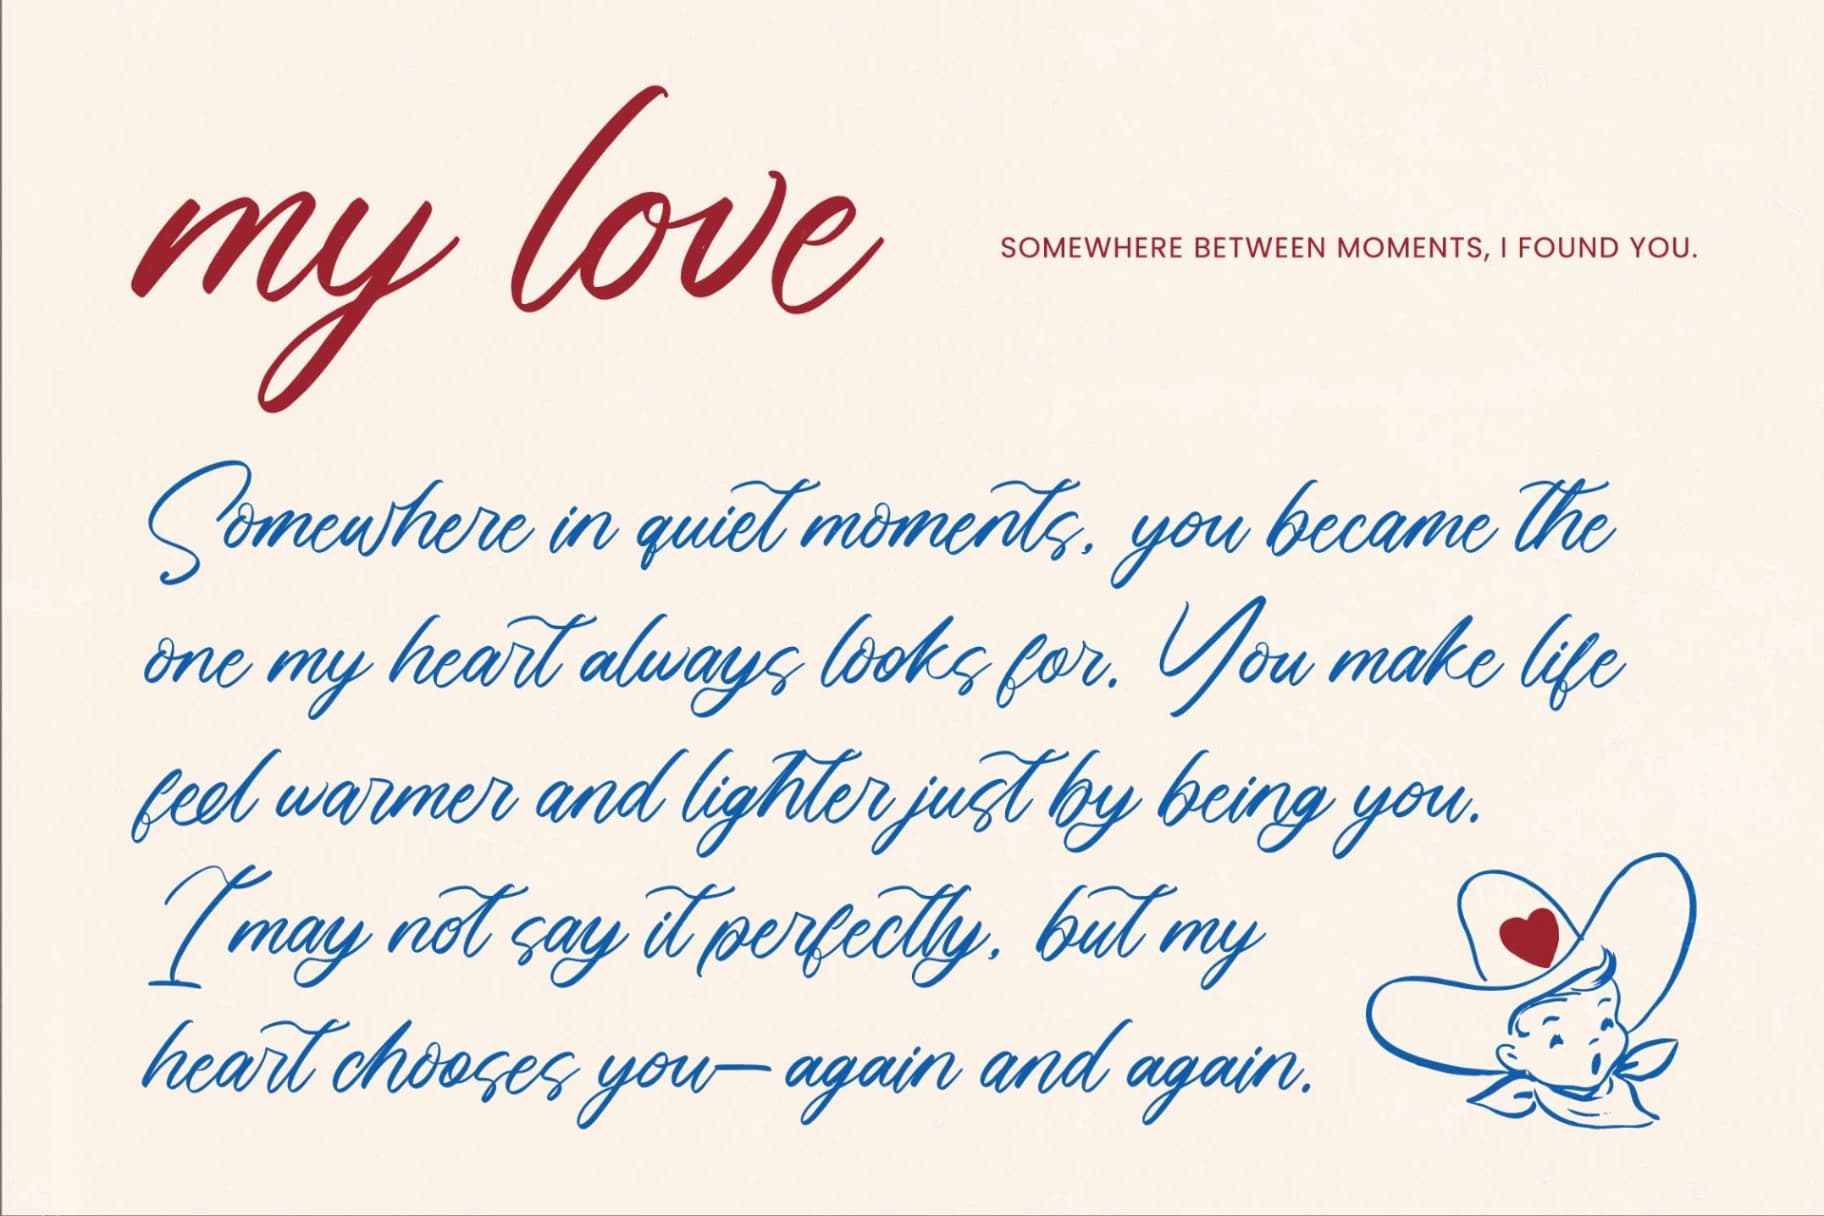 my love
SOMEWHERE BETWEEN MOMENTS, I FOUND YOU.
Somewhere in quiet moments, you became the
one my heart always looks for. You make life
feel warmer and lighter just by being you.
I may not say it perfectly, but my
heart chooses you—again and again.